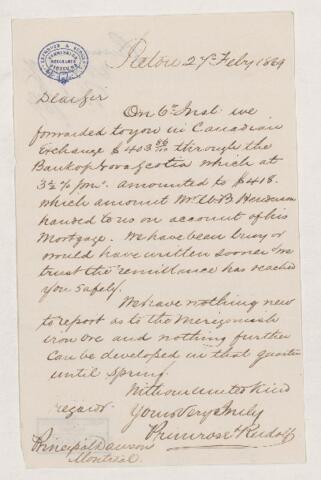 PRIMROSE & RUDOLF
COMMISSION
MERCHANTS
PICTOU N.S.
Pictou 27th Feby 1869
Dear Sir
On 6th Inst. we
forwarded to you in Canadian
Exchange $403 86/100 through the
Bank of Nova Scotia which at
3½ % Pm. amounted to $418.
which amount Mr W B Henderson
handed to us on account of his
Mortgage. We have been busy or
would have written sooner & we
trust the remittance has reached
you safely.
We have nothing new
to report as to the Merigomish
iron ore and nothing further
can be developed in that quarter
until Spring.
With our united kind
regards
Yours Very truly
Primrose & Rudolf
Principal Dawson
Montreal.